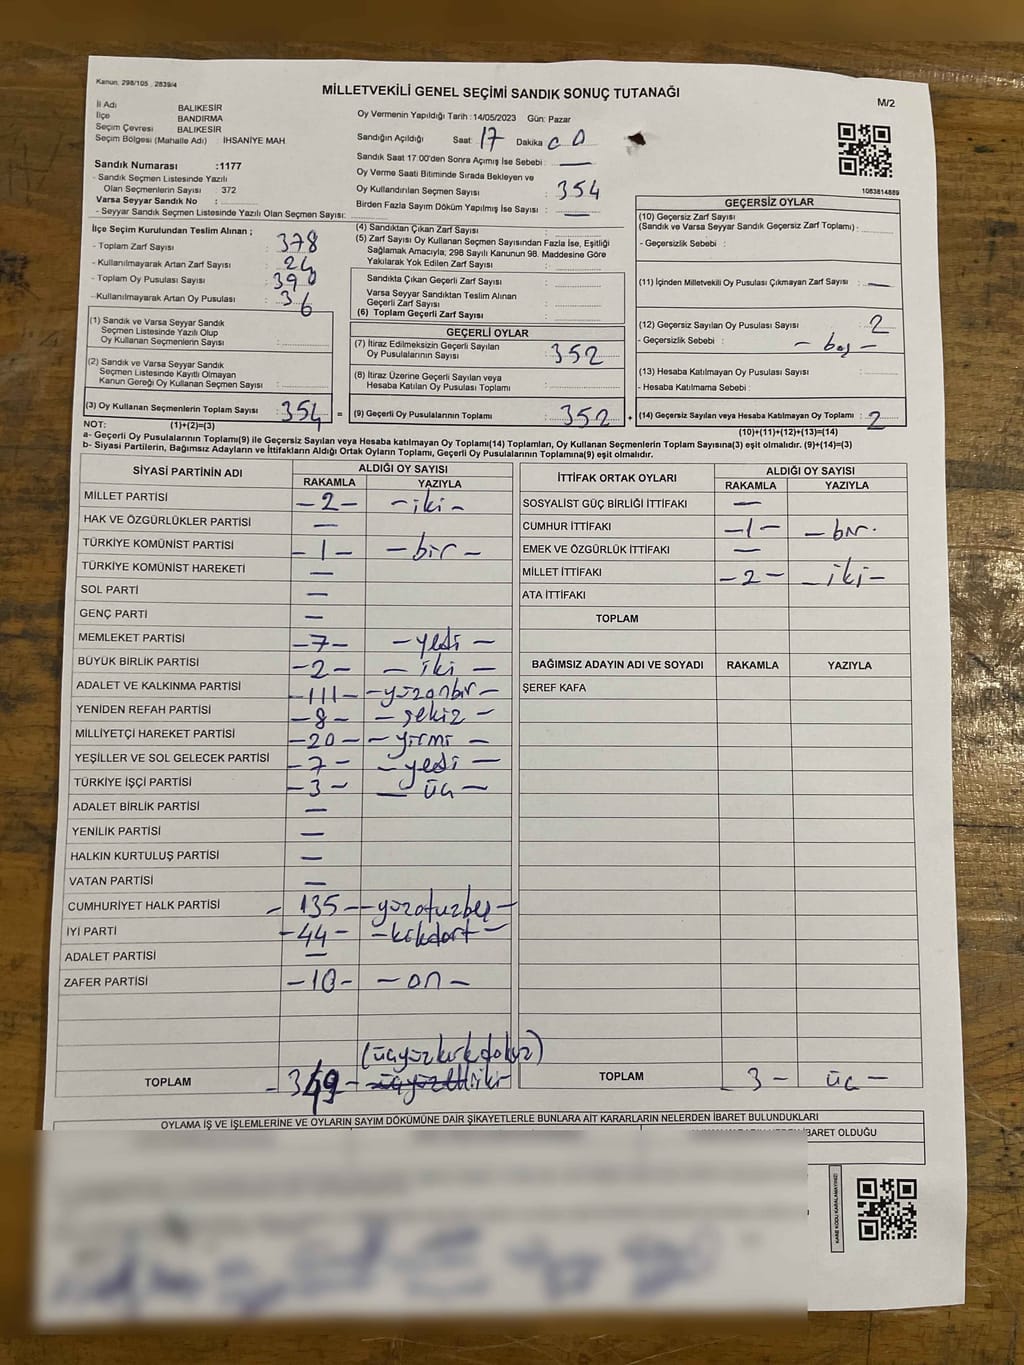 Kanun, 298/105 , 2839/4
MİLLETVEKİLİ GENEL SEÇİMİ SANDIK SONUÇ TUTANAĞI
M/2
İl Adı BALIKESİR
İlçe BANDIRMA
Seçim Çevresi BALIKESİR
Seçim Bölgesi (Mahalle Adı) İHSANİYE MAH
Sandık Numarası :1177
- Sandık Seçmen Listesinde Yazılı
Olan Seçmenlerin Sayısı : 372
Varsa Seyyar Sandık No :
- Seyyar Sandık Seçmen Listesinde Yazılı Olan Seçmen Sayısı:
Oy Vermenin Yapıldığı Tarih :14/05/2023 Gün: Pazar
Sandığın Açıldığı Saat: 17 Dakika 00
Sandık Saat 17.00'den Sonra Açımış İse Sebebi : —
Oy Verme Saati Bitiminde Sırada Bekleyen ve
Oy Kullandırılan Seçmen Sayısı : 354
Birden Fazla Sayım Döküm Yapılmış İse Sayısı : —
1083814889
İlçe Seçim Kurulundan Teslim Alınan ;
- Toplam Zarf Sayısı : 378
- Kullanılmayarak Artan Zarf Sayısı : 24
- Toplam Oy Pusulası Sayısı : 390
- Kullanılmayarak Artan Oy Pusulası : 36
(1) Sandık ve Varsa Seyyar Sandık
Seçmen Listesinde Yazılı Olup
Oy Kullanan Seçmenlerin Sayısı :
(2) Sandık ve Varsa Seyyar Sandık
Seçmen Listesinde Kayıtlı Olmayan
Kanun Gereği Oy Kullanan Seçmen Sayısı :
(3) Oy Kullanan Seçmenlerin Toplam Sayısı : 354 =
(1)+(2)=(3)
(4) Sandıktan Çıkan Zarf Sayısı :
(5) Zarf Sayısı Oy Kullanan Seçmen Sayısından Fazla İse, Eşitliği
Sağlamak Amacıyla; 298 Sayılı Kanunun 98. Maddesine Göre
Yakılarak Yok Edilen Zarf Sayısı :
Sandıkta Çıkan Geçerli Zarf Sayısı :
Varsa Seyyar Sandıktan Teslim Alınan
Geçerli Zarf Sayısı :
(6) Toplam Geçerli Zarf Sayısı :
GEÇERLİ OYLAR
(7) İtiraz Edilmeksizin Geçerli Sayılan
Oy Pusulalarının Sayısı : 352
(8) İtiraz Üzerine Geçerli Sayılan veya
Hesaba Katılan Oy Pusulası Toplamı :
(9) Geçerli Oy Pusulalarının Toplamı : 352 +
GEÇERSİZ OYLAR
(10) Geçersiz Zarf Sayısı
(Sandık ve Varsa Seyyar Sandık Geçersiz Zarf Toplamı) :
- Geçersizlik Sebebi :
(11) İçinden Milletvekili Oy Pusulası Çıkmayan Zarf Sayısı : —
(12) Geçersiz Sayılan Oy Pusulası Sayısı : 2
- Geçersizlik Sebebi : - boş -
(13) Hesaba Katılmayan Oy Pusulası Sayısı :
- Hesaba Katılmama Sebebi :
(14) Geçersiz Sayılan veya Hesaba Katılmayan Oy Toplamı : 2
(10)+(11)+(12)+(13)=(14)
NOT:
a- Geçerli Oy Pusulalarının Toplamı(9) ile Geçersiz Sayılan veya Hesaba katılmayan Oy Toplamı(14) Toplamları, Oy Kullanan Seçmenlerin Toplam Sayısına(3) eşit olmalıdır. (9)+(14)=(3)
b- Siyasi Partilerin, Bağımsız Adayların ve İttifakların Aldığı Ortak Oyların Toplamı, Geçerli Oy Pusulalarının Toplamına(9) eşit olmalıdır.
SİYASİ PARTİNİN ADI ALDIĞI OY SAYISI
RAKAMLA YAZIYLA
MİLLET PARTİSİ -2- -iki-
HAK VE ÖZGÜRLÜKLER PARTİSİ —
TÜRKİYE KOMÜNİST PARTİSİ -1- -bir-
TÜRKİYE KOMÜNİST HAREKETİ —
SOL PARTİ —
GENÇ PARTİ —
MEMLEKET PARTİSİ -7- -yedi-
BÜYÜK BİRLİK PARTİSİ -2- -iki-
ADALET VE KALKINMA PARTİSİ -111- -yüzonbir-
YENİDEN REFAH PARTİSİ -8- -sekiz-
MİLLİYETÇİ HAREKET PARTİSİ -20- -yirmi-
YEŞİLLER VE SOL GELECEK PARTİSİ -7- -yedi-
TÜRKİYE İŞÇİ PARTİSİ -3- -üç-
ADALET BİRLİK PARTİSİ —
YENİLİK PARTİSİ —
HALKIN KURTULUŞ PARTİSİ —
VATAN PARTİSİ —
CUMHURİYET HALK PARTİSİ -135- -yüzotuzbeş-
İYİ PARTİ -44- -kırkdört-
ADALET PARTİSİ —
ZAFER PARTİSİ -10- -on-
(üçyüzkırkdokuz)
TOPLAM -349- üçyüzelliiki
İTTİFAK ORTAK OYLARI ALDIĞI OY SAYISI
RAKAMLA YAZIYLA
SOSYALİST GÜÇ BİRLİĞİ İTTİFAKI —
CUMHUR İTTİFAKI -1- -bir-
EMEK VE ÖZGÜRLÜK İTTİFAKI —
MİLLET İTTİFAKI -2- -iki-
ATA İTTİFAKI
TOPLAM
BAĞIMSIZ ADAYIN ADI VE SOYADI RAKAMLA YAZIYLA
ŞEREF KAFA
TOPLAM -3- üç-
OYLAMA İŞ VE İŞLEMLERİNE VE OYLARIN SAYIM DÖKÜMÜNE DAİR ŞİKAYETLERLE BUNLARA AİT KARARLARIN NELERDEN İBARET BULUNDUKLARI
İBARET OLDUĞU
KARE KODU KARALAMAYINIZ!